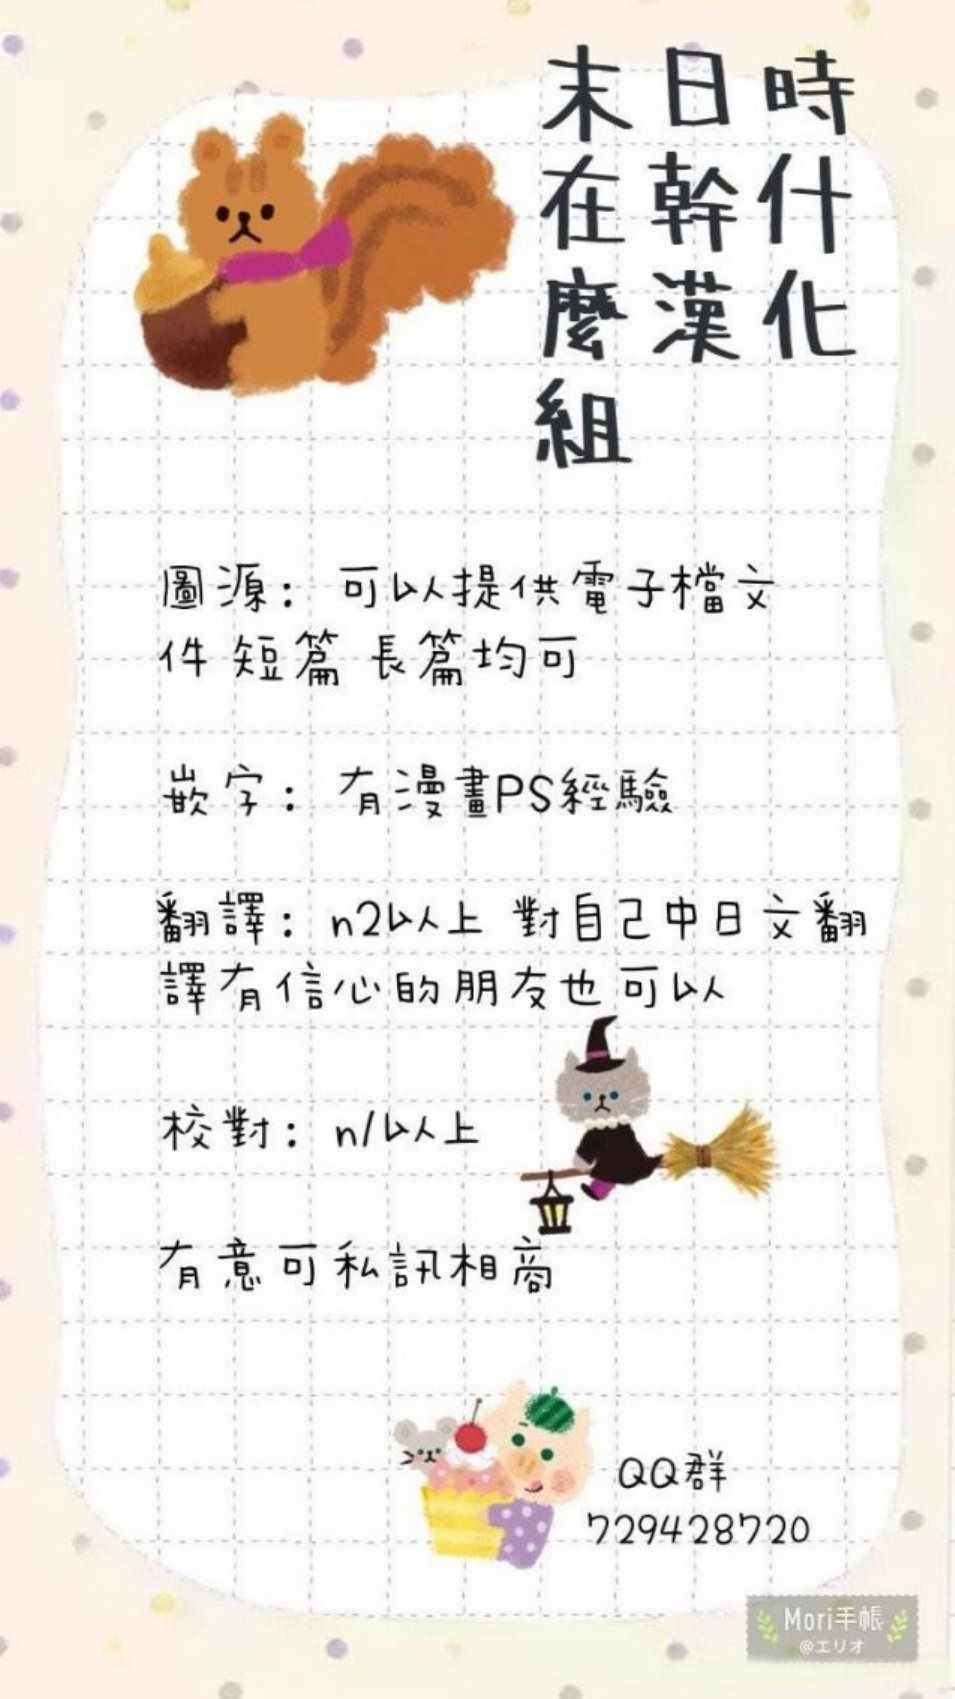 末日時
在幹什
麼漢化
組
圖源: 可以提供電子檔文
件 短篇 長篇均可
嵌字: 有漫畫PS經驗
翻譯: n2以上 對自己中日文翻
譯有信心的朋友也可以
校對: n1以上
有意可私訊相商
QQ群
729428720
Mori手帳
@エリオ